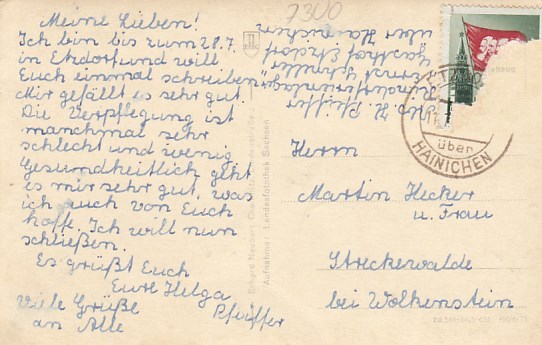 7300
Meine Lieben!
Ich bin bis zum 28.7.
in Etzdorf und will
Euch einmal schreiben
Mir gefällt es sehr gut.
Die Verpflegung ist
manchmal sehr
schlecht und wenig
Gesundheitlich geht
es mir sehr gut, was
ich auch von Euch
hoffe. Ich will nun
schließen.
Es grüßt Euch
Eure Helga
Pfeiffer
Viele Grüße
an Alle
Abs. H. Pfeiffer
Gasthof Etzdorf
über Hainichen
Erhard Neubert
Aufnahme: Landesfotothek Sachsen
über
HAINICHEN
Herrn
Martin Hecker
u. Frau
Streckewalde
bei Wolkenstein